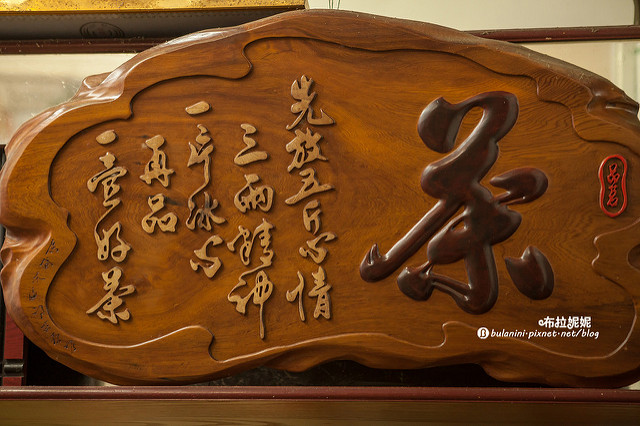 品茗
茶
先放五斤心情
三兩精神
一片冰心
再品
一壺好茶
布拉妮妮
bulanini.pixnet.net/blog